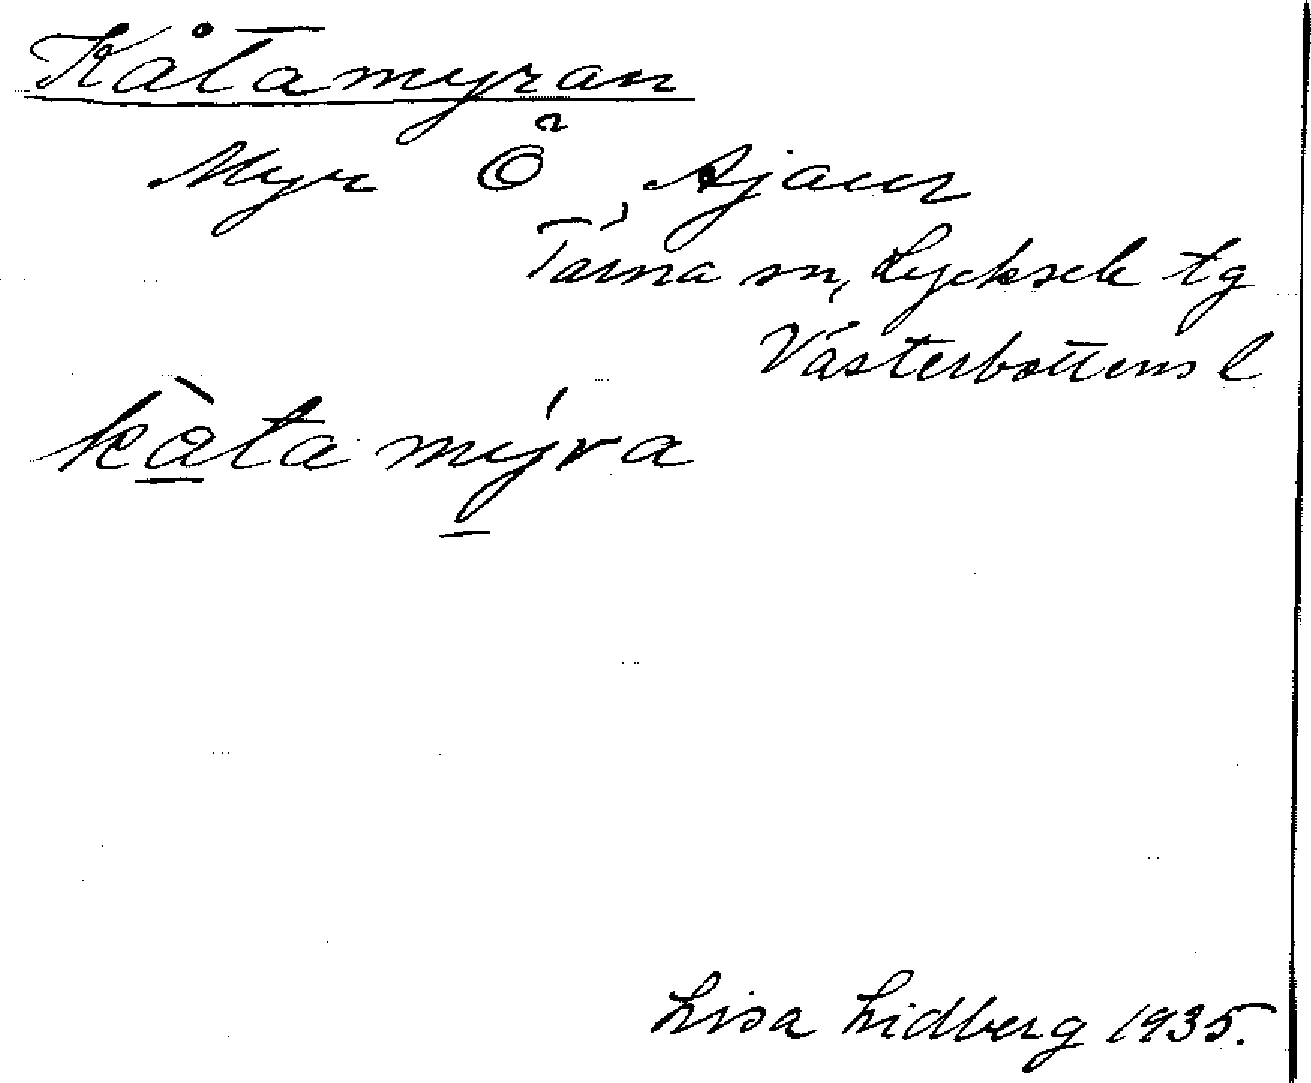 Kåtamyran
Myr Ö Ajaur
Tärna sn, Lycksele tg
Västerbottens l
kåtamýra
Lisa Lidberg 1935.